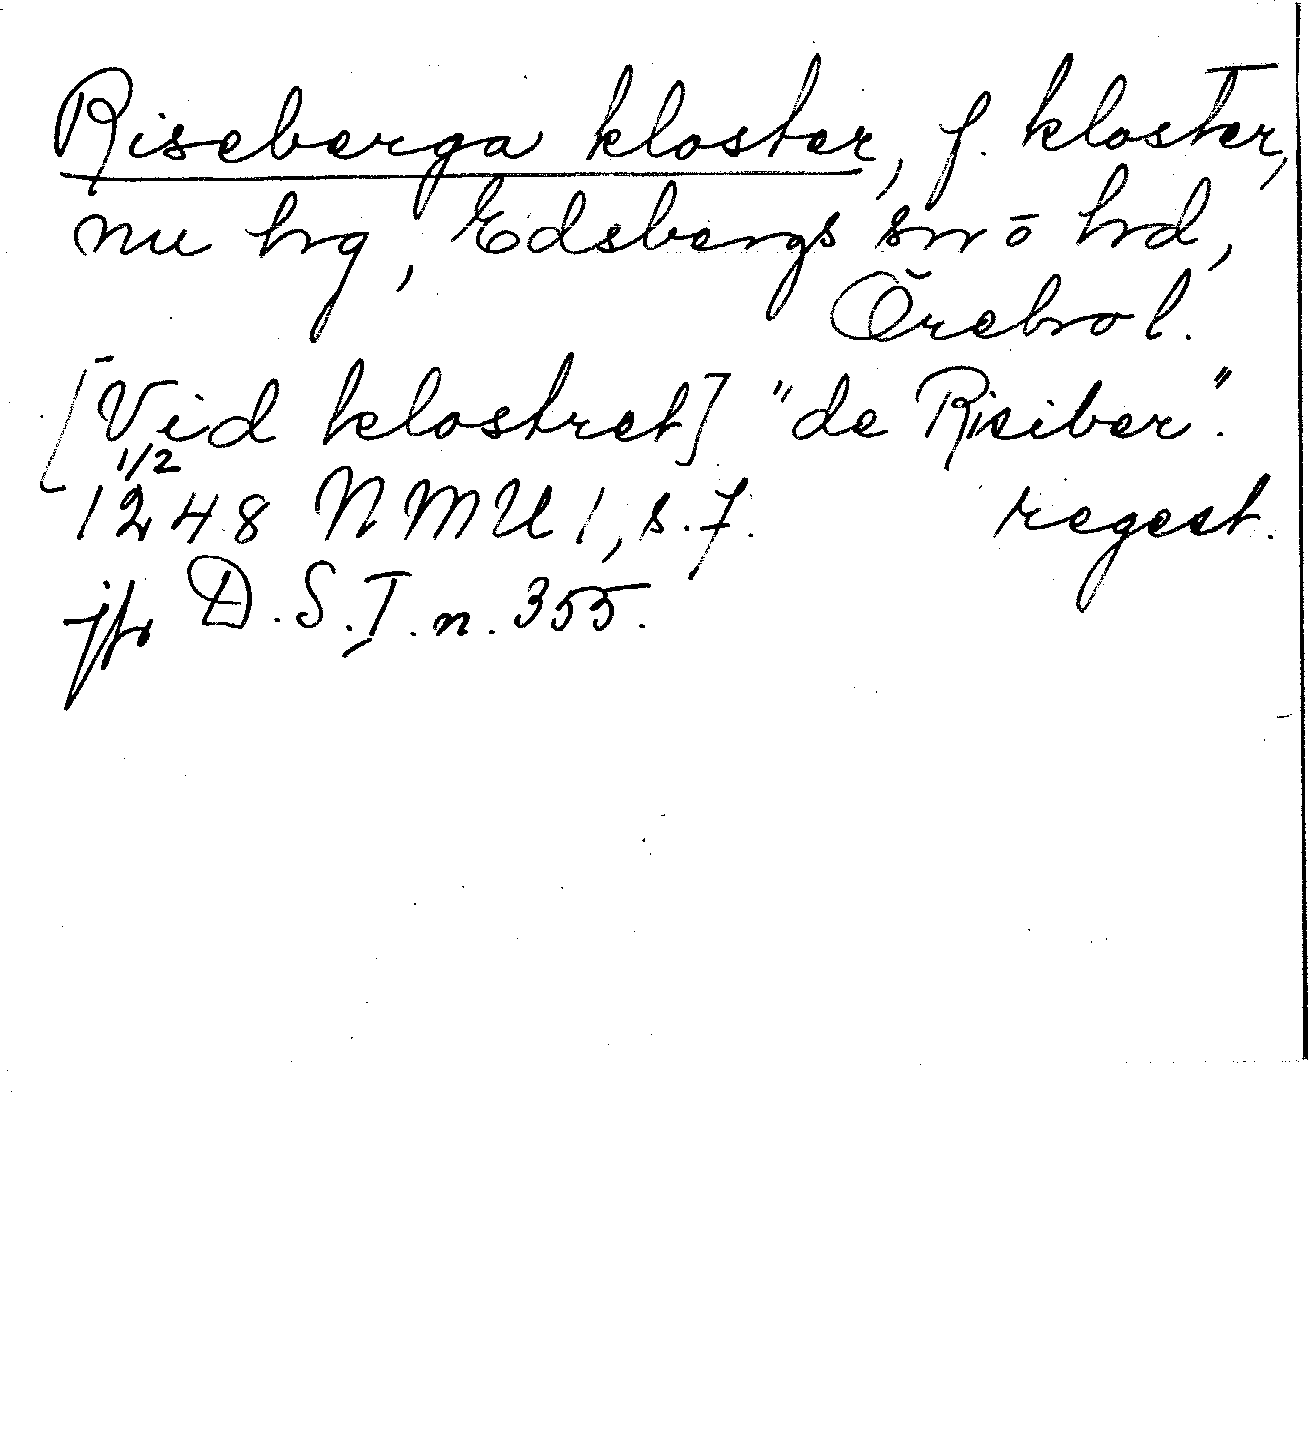 Riseberga kloster, f. kloster,
nu hrg, Edsbergs sn o hrd,
Örebro l.
[Vid klostret] "de Risiber".
1/2
1248 NMU 1, s. 7. regest.
jfr D.S.I. n. 355.